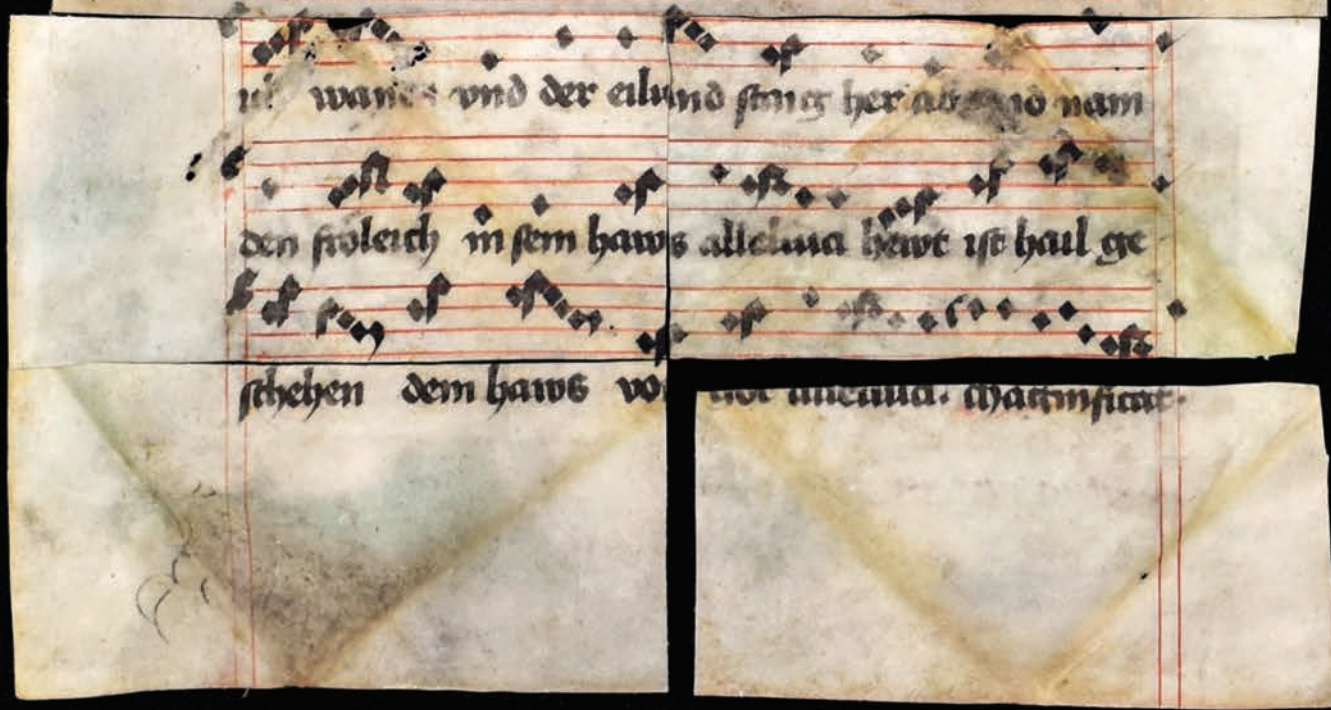 wanen vnd der eilund staig her ab vnd nam
den froleich in sein haws alleluia hewt ist hail ge
schehen dem haws von got alleluia. Magnificat.